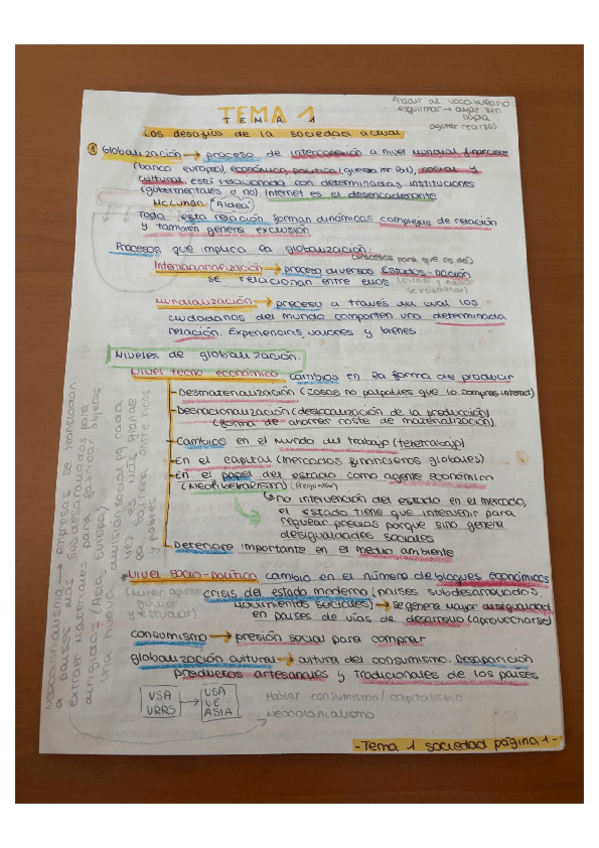 Añadir al vocabulario
esquilmar → dejar sin
nada
agotar recursos
TEMA 1
TEMA 1
Los desafíos de la sociedad actual
1 Globalización → proceso de interconexión a nivel mundial, financiero
(banco europeo), económico, política (guerra), social y
cultural, está relacionada con determinadas instituciones
(gubernamentales o no). Internet es el desencadenante
McLuhan ("Aldea")
Toda esta relación forman dinámicas complejas de relación
y también genera exclusión
Procesos que implica la globalización: (procesos para que se dé)
Internacionalización → proceso diversos Estados-nación
se relacionan entre ellos (estado y nación
se relacionan)
Mundialización → proceso a través del cual los
ciudadanos del mundo comparten una determinada
relación. Experiencias, valores y bienes
Niveles de globalización.
Nivel tecno económico cambios en la forma de producir
- Desmaterialización (cosas no palpables que lo compras internet)
- Desnacionalización (deslocalización de la producción)
(forma de ahorrar coste de materialización)
- Cambios en el mundo del trabajo (teletrabajo)
- En el capital (mercados financieros globales)
- En el papel del estado como agente económico
(Neoliberalismo) (Preguntar)
↳ no intervención del estado en el mercado,
el estado tiene que intervenir para
regular precios porque sino genera
desigualdades sociales
- Deterioro importante en el medio ambiente
* Nivel socio-político cambio en el número de bloques económicos
crisis del estado moderno (países subdesarrollados,
movimientos sociales) → se genera mayor desigualdad
en países de vías de desarrollo (aprovecharse)
(Mirar apuntes
y estudiar)
consumismo → presión social para comprar
globalización cultural → cultura del consumismo. Desaparición
productos artesanales y tradicionales de los países
USA
URRS
→
USA
UE
ASIA
Hablar consumismo/capitalismo
Neocolonialismo
Neocolonialismo → empresas se trasladan
a países más subdesarrollados para
extraer materiales para fabricar objetos
(Asia, Europa)
una nueva división social pq cada
vez es más grande
la barrera entre ricos
y pobres
-Tema 1 sociedad página 1-